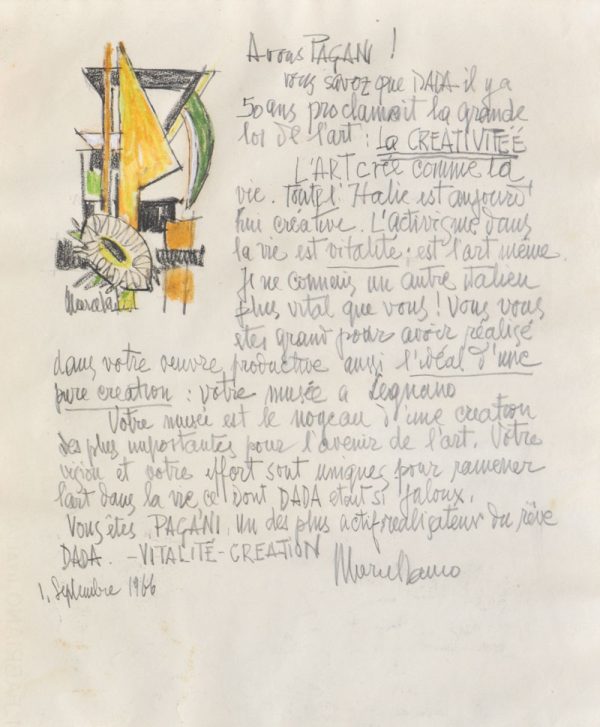 A vous PAGANI !
vous savez que DADA il y a
50 ans proclamait la grande
loi de l'art : La CREATIVITEÉ
L'ART crée comme la
vie. Toute l'Italie est aujourd'
hui créative. L'activisme dans
la vie est vitalité ; est l'art même.
Je ne connais un autre italien
plus vital que vous ! Vous vous
etes grand pour avoir réalisé
dans votre oeuvre productive aussi l'idéal d'une
pure creation : votre musée a Legnano
Votre musée est le noyeau d'une creation
des plus importantes pour l'avenir de l'art. Votre
vision et votre effort sont uniques pour ramener
l'art dans la vie ce dont DADA etait si jaloux.
Vous êtes, PAGANI, un des plus actif realisateur du rêve
DADA. -VITALITÉ-CREATION
Marcel Janco
1, Septembre 1966